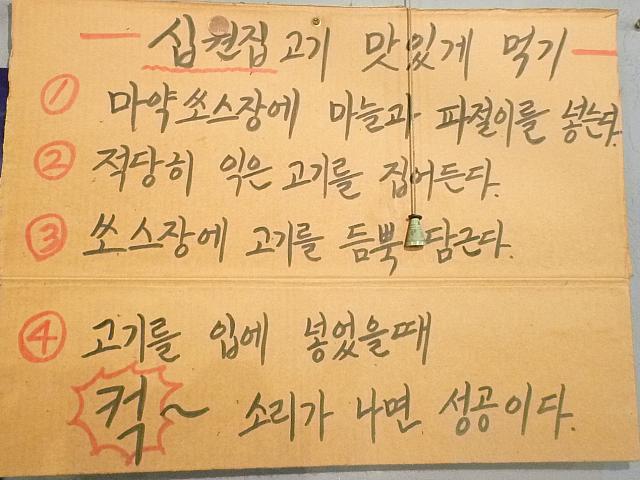 십원집 고기 맛있게 먹기
① 마약쏘스장에 마늘과 파절이를 넣는다.
② 적당히 익은 고기를 집어든다.
③ 쏘스장에 고기를 듬뿍 담근다.
④ 고기를 입에 넣었을때
컥~ 소리가 나면 성공이다.